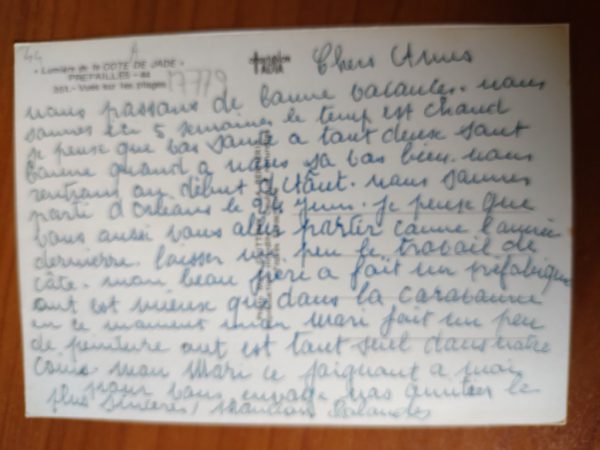 44 A
« Lumière de la COTE DE JADE »
PREFAILLES - 44
351. - Vues sur les plages
17779
Chers Amis
nous passons de bonne vacances. nous
sommes ici 5 semaines le temp est chaud
je pense que vos santé a tout deux sont
bonne quand a nous sa vas bien. nous
rentrons au début d'Août. nous sommes
parti d'orleans le 24 Juin. je pense que
vous aussi vous aler partir comme l'année
dernierre. laisser un peu le travail de
côte. mon beau père a fait un préfabriqué
ont est mieux que dans la caravanne
en ce moment mon mari fait un peu
de peinture ont est tout seul dans notre
coin. mon mari ce joignant a moi
pour vous envoyer nos amitiés le
plus sincères